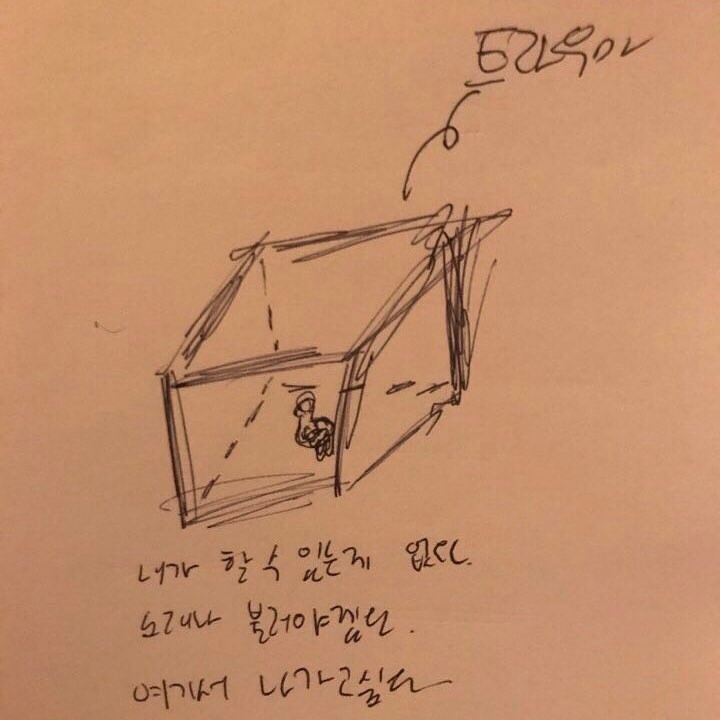 트라우마
내가 할 수 있는게 없다.
노래나 불러야겠다.
여기서 나가고싶다